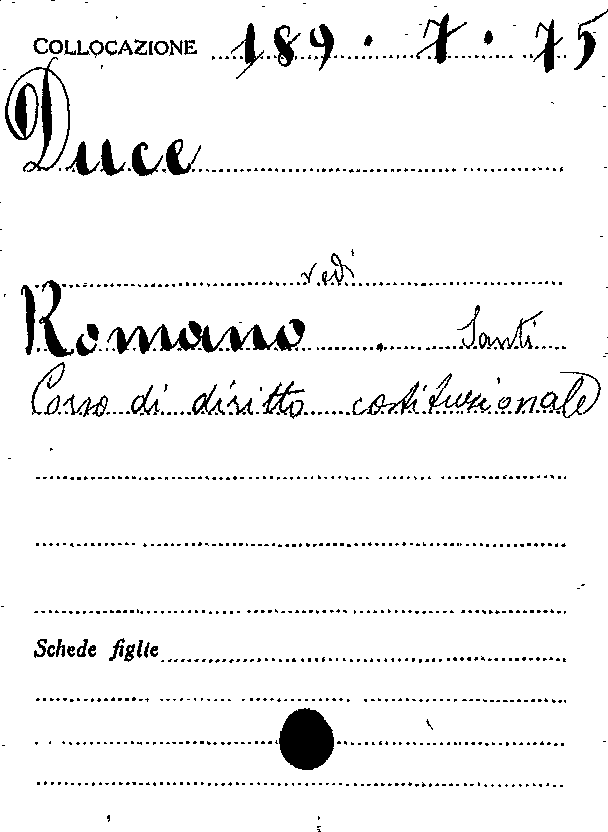 COLLOCAZIONE 189.7.75
Duce
vedi
Romano, Santi
Corso di diritto costituzionale
Schede figlie